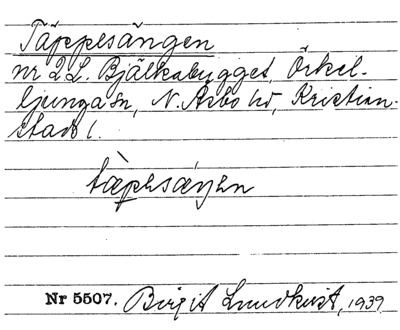 Täppesängen
nr 2 L. Bjälkabygget, Örkel-
ljunga sn, N. Åsbo hd, Kristian-
stads l.
Nr 5507. Birgit Lundkvist, 1939